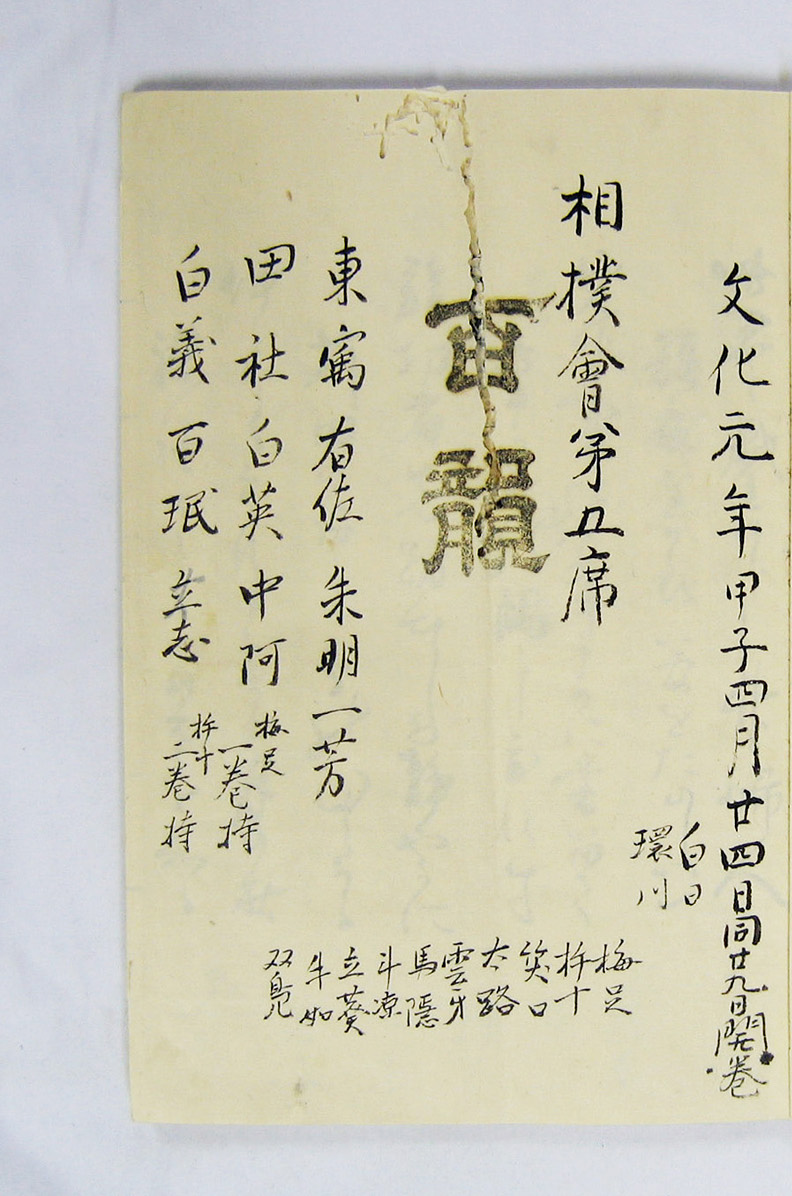 文化元年甲子四月廿四日同廿九日開巻
白日
環川
相撲會第五席
梅足
杵十
笑口
太路
雲牙
馬隠
斗凉
立葵
牛如
双鳧
百韻
東寓 有佐 朱明 一芳
田社 白英 中阿
梅足
一巻持
白義 百珉 立志
杵十
二巻持